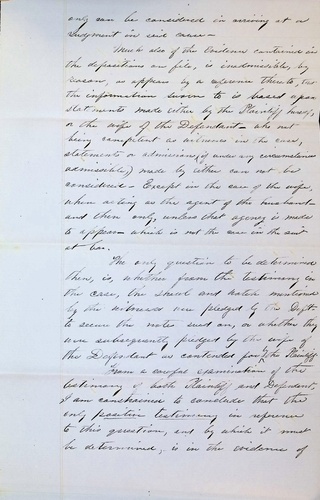 only can be considered in arriving at a
Judgment in said cause –
Much also of the Evidence contained in
the depositions on file, is inadmissible, by
reason, as appears by a reference thereto, that
the information sworn to is based upon
statements made either by the Plaintiff himself,
or the wife of the Defendant – who not
being competent as witnesses in the case,
statements or admissions (if under any circumstances
admissible,) made by either can not be
considered – Except in the case of the wife,
when acting as the agent of the husband –
and then only, unless that agency is made
to appear – which is not the case in the suit
at bar.
The only question to be determined
then, is, whether from the testimony in
the case, the and notes mentioned
by the witnesses were pledged by the Deft.
to secure the notes sued on, or whether they
were subsequently pledged by the wife of
the Defendant as contended for by the Plaintiff
From a careful examination of the
testimony of both Plaintiff and Defendant,
I am constrained to conclude that the
only positive testimony in reference
to this question, and by which it must
be determined, is in the evidence of